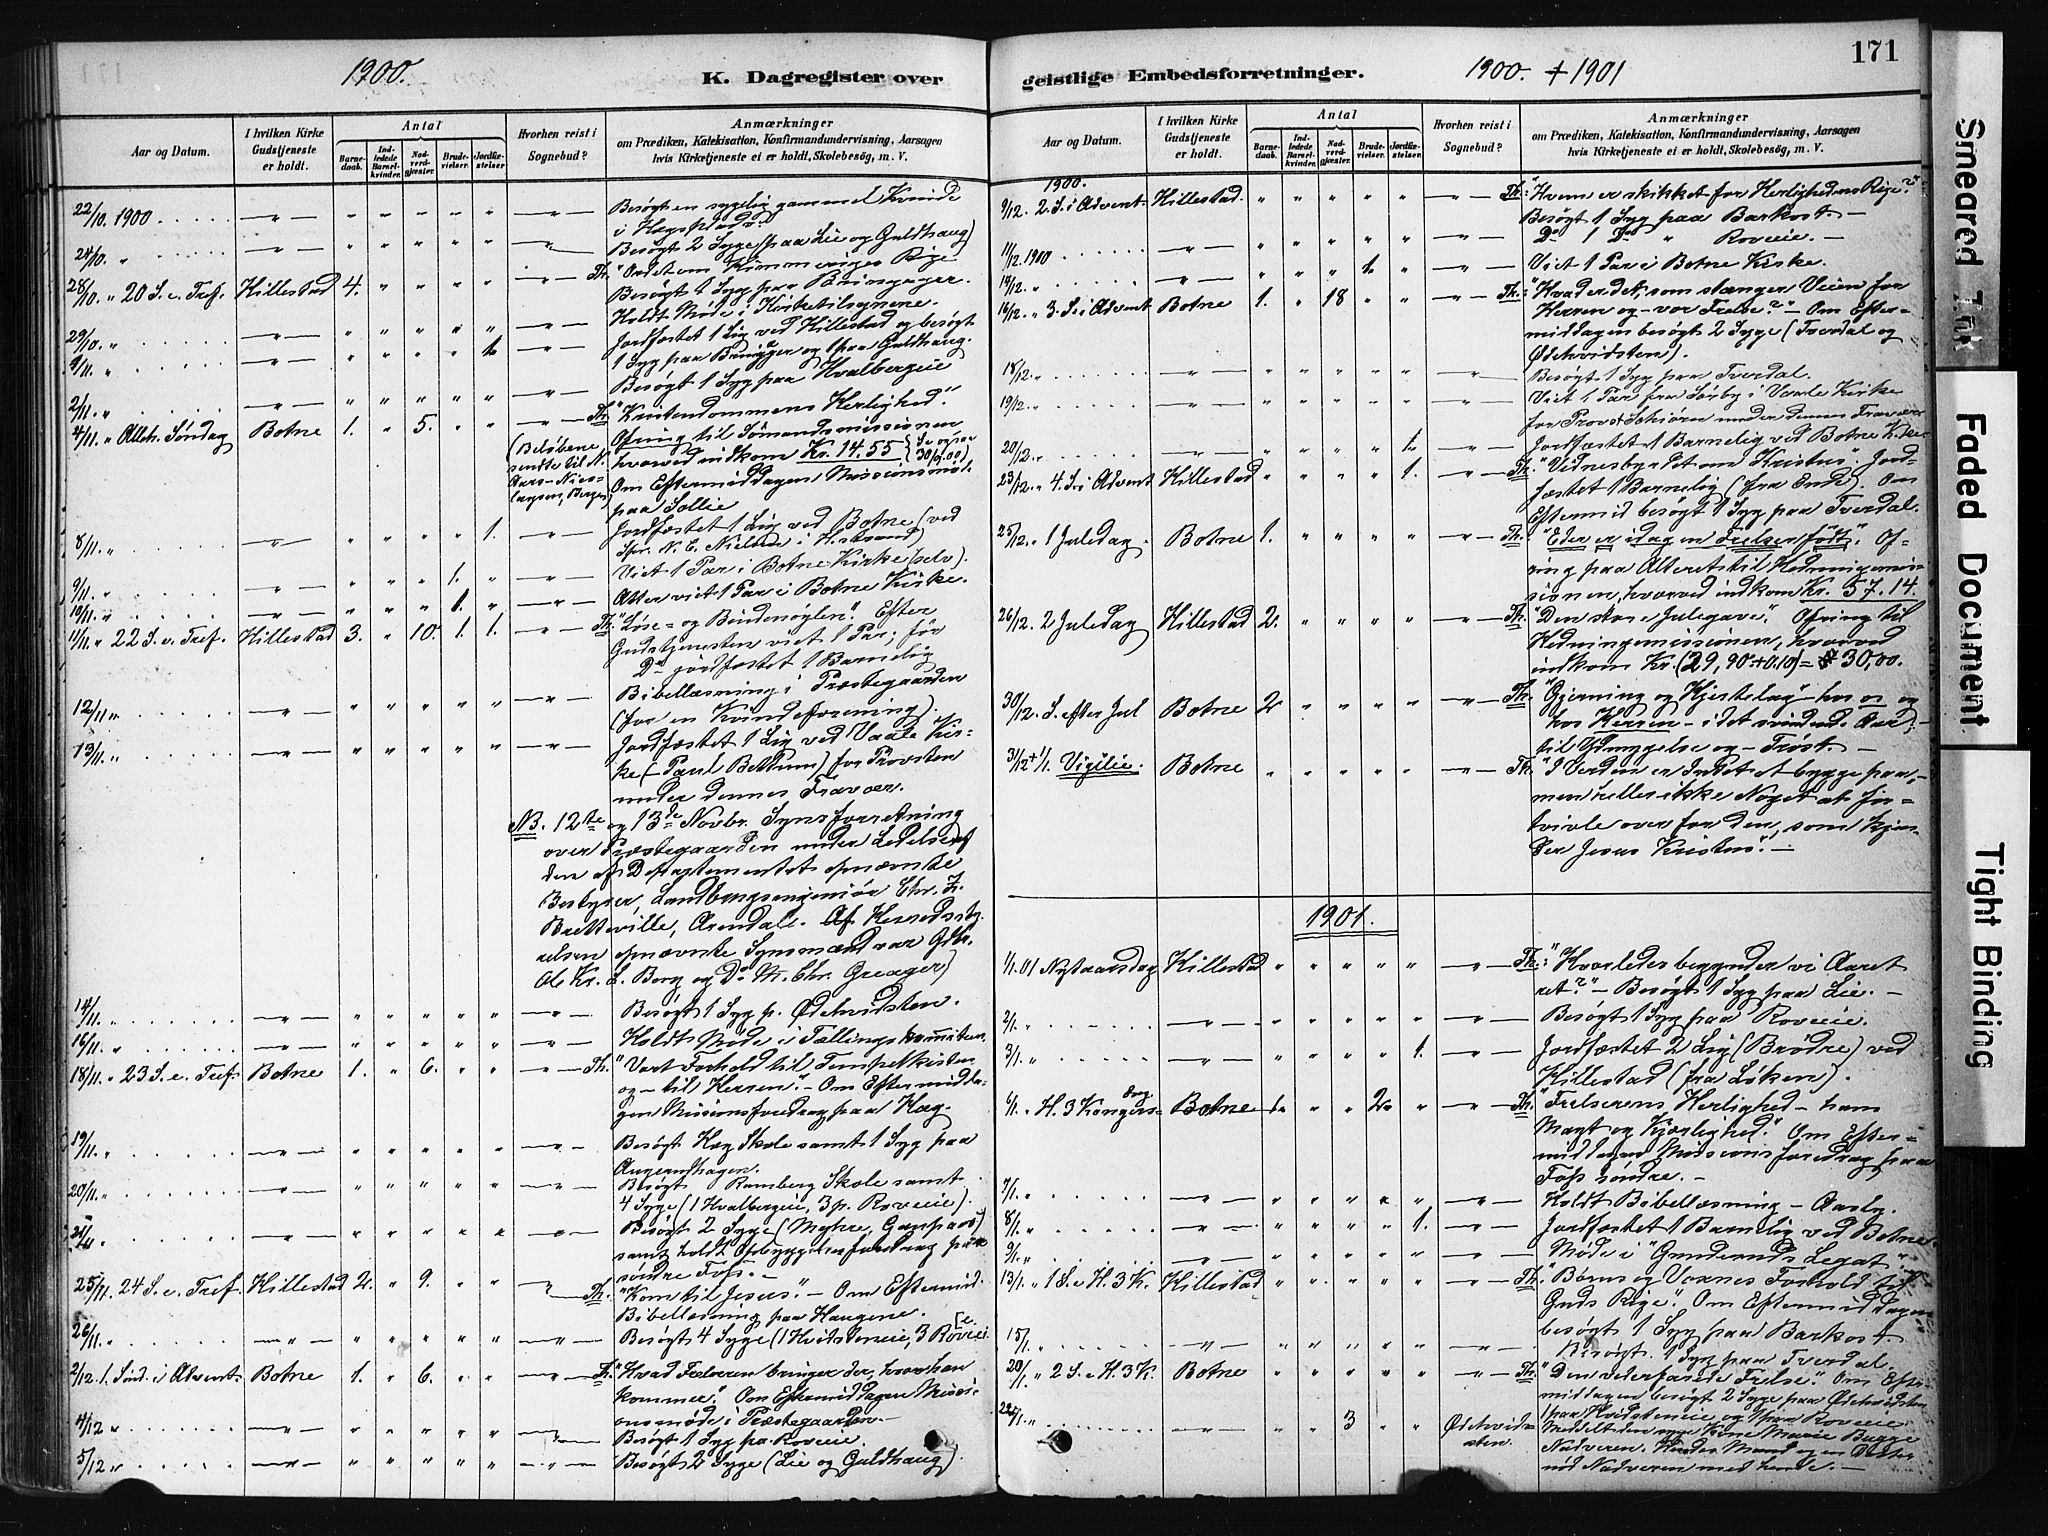 1900.
K. Dagregister over
Aar og Datum.
I hvilken Kirke Gudstjeneste er holdt.
Antal
Barnedaab.
Indledede Barselkvinder.
Nadverdgjæster.
Brudevielser.
Jordfæstelser.
Hvorhen reist i Sognebud?
Anmærkninger
om Prædiken, Katekisation, Konfirmandundervisning, Aarsagen
hvis Kirketjeneste ei er holdt, Skolebesøg, m. V.
22/10. 1900 Besøgt en sygelig gammel Kvinde
24/10. " Besøgt 2 Syge (paa Lie og Guldhaug)
28/10. " 20 S. e. Tref. Hillestad 4. Th. "Ordet om Himmeriges Rige"
Holdt Møde i Kirketilsynene.
29/10. " Jordfæstet 1 Lig ved Hillestad og besøgt
Besøgt 1 Syg paa Hvalbergeie
2/11. "
4/11. " Alleh. Søndag Botne 1. " 5. Th. "Kristendommens Herlighed."
Ofring til Sømandsmissionen
hvorved indkom Kr. 14.55
Om Eftermiddagen Missionsmøde
paa Sollie
8/11. " 1. Jordfæstet 1 Lig ved Botne (ved
9/11. " 1. Viet 1 Par i Botne Kirke (selv).
10/11. " 1. Atter viet 1 Par i Botne Kirke.
11/11. " 22 S. e. Tref. Hillestad 3. " 10. 1. 1. Th. "Løse- og Bindenøglen." Efter
Gudstjenesten viet 1 Par; før
Do jordfæstet 1 Barnelig
12/11. " Bibellæsning i Præstegaarden
(for en Kvindeforening).
13/11. " Jordfæstet 1 Lig ved Vaale Kir-
ke (Paul Bettum) for Provsten
under dennes Fravær.
NB. 12te og 13de Novbr. Synsforretning
over Præstegaarden under Ledelse af
den af Departementet opnævnte
Bestyrer, Landbrugsingeniør Chr. Z.
Bretteville, Arendal. Af Herredssty-
relsen opnævnte Synsmænd var Gdbr.
Ole Kr. L. Berg og Do M. Chr. Greager)
14/11. " Besøgt 1 Syg p. Ødehvidsten.
16/11. " Holdt Møde i Tællingskommitteen.
18/11. " 23 S. e. Tref. Botne 1. " 6. Th. "Vort Forhold til Tempelkisten
og – til Herren." – Om Eftermidda-
gen Missionsforedrag paa Hæg.
19/11. " Besøgt Hæg Skole samt 1 Syg paa
20/11. " Besøgt Ramberg Skole samt
4 Syge (1 Hvalbergeie, 3 p. Roveie).
samt holdt Opbyggelsesforedrag paa
søndre Fos. –
25/11. 24 S. e. Tref. Hillestad 2. " 9. Th. "Kom til Jesus". – Om Eftermid.
Bibellæsning paa Haugene.
26/11. " Besøgt 4 Syge (1 Hvitsteneie, 3 Roveie.
2/12. 1. Sønd. i Advent Botne 1. " 6. Th. "Hvad Frelseren bringer der, hvor han
kommer." Om Eftermiddagen Missi-
onsmøde i Præstegaarden
4/12 " Besøgt 1 Syg pa. Roveie.
5/12 " Besøgt 2 Syge (Lie og Guldhaug)
geistlige Embedsforretninger.
1900. + 1901
171
Aar og Datum.
I hvilken Kirke Gudstjeneste er holdt.
Antal
Barnedaab.
Indledede Barselkvinder.
Nadverdgjæster.
Brudevielser.
Jordfæstelser.
Hvorhen reist i Sognebud?
Anmærkninger
om Prædiken, Katekisation, Konfirmandundervisning, Aarsagen
hvis Kirketjeneste ei er holdt, Skolebesøg, m. V.
1900.
9/12. 2. S. i Advent. Hillestad. Th. "Hvem er skikket for Herlighedens Rige?"
Besøgt 1 Syg paa Barkost. –
11/12. 1900 Do 1 Do " Roveie. –
Viet 1 Par i Botne Kirke.
16/12. " 3. S. i Advent Botne 1. " 18 Th. "Hvad er det, som stænger Veien for
Herren og – vor Frelse?" – Om Efter-
middagen besøgt 2 Syge (Tverdal og
Ødehvidsten).
18/12. " Besøgt 1 Syg paa Tverdal.
19/12. " Viet 1 Par fra Sørby i Vaale Kirke
for Provst Schiørn under dennes Fravær
20/12. " 1. Jordfæstet 1 Barnelig ved Botne Kirke.
23/12. " 4. S. i Advent Hillestad 1. Th. "Vidnesbyrdet om Kristus". Jord-
fæstet 1 Barnelig (fra Enge). Om
Eftermid. besøgt 1 Syg paa Tverdal.
25/12. " 1 Juledag. Botne 1. Th. "Eder er idag en Frelser født". Of-
ring paa Alteret til Hedningemis-
sionen, hvorved indkom Kr. 57.14.
26/12. 2 Juledag Hillestad 2. Th. "Den store Julegave." Ofring til
Hedningemissionen, hvorved
indkom Kr. (29,90 + 0.10) = 30,00.
30/12. S. efter Jul Botne 2 Th. "Gjerning og Hjertelag" – hos os og
hos Herren – i det svindende Aar;
til Ydmygelse og – Trøst. –
31/12 + 1/1. Vigilie. Botne Th. "I Verden er Intet at bygge paa, –
men heller ikke Noget at for-
tvivle over for den, som kjen-
der Jesus Kristus". –
1901.
1/1. 01 Nytaarsdag Hillestad Th. "Hvorledes begynder vi Aaret
ret?" – Besøgt 1 Syg paa Lie. –
2/1. " Besøgt 1 Syg paa Roveie.
3/1. " 1. Jordfæstet 2 Lig (Brødre) ved
Hillestad (fra Løken).
6/1. " H. 3 Kongers dag Botne 1 2 Th. "Frelserens Herlighed – hans
Magt og Kjærlighed." Om Efter-
middagen Missionsforedrag paa
Foss søndre. –
7/1. " Holdt Bibellæsning – Aasby.
8/1. " 1. Jordfæstet 1 Barnelig ved Botne
9/1. " Møde i "Gunderuds Legat".
13/1. " 1 S. e. H. 3 K. Hillestad Th. "Børns og Voxnes Forhold til
Guds Rige." Om Eftermiddagen
besøgt 1 Syg paa Barkost.
15/1. " Besøgt 1 Syg paa Tverdal.
20/1. " 2 S. e. H. 3 K. Botne Th. "Den vederfarede Frelse". Om Efter-
middagen besøgt 2 Syge paa Ødehvidsten
3 Ødehvid-
sten. Meddelt den syge Kone Marie Bugge
Nadveren. Hendes Mand og en Datter
nød Nadveren med hende. –
Smeared Ink
Faded Document
Tight Binding